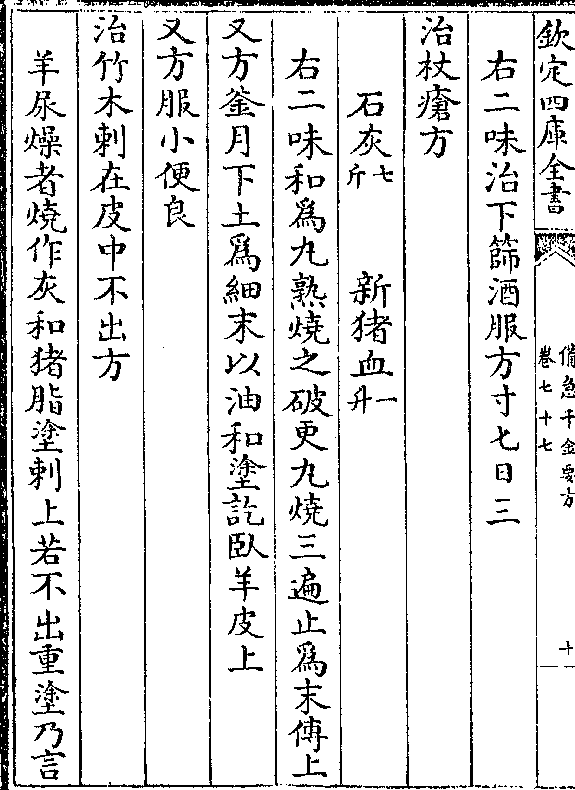 欽定四庫全書
備急千金要方
卷七十七
十
右二味治下篩酒服方寸七日三
治杖瘡方
石灰七斤 新猪血一升
右二味和爲丸熟燒之破更丸燒三遍止爲末傅上
又方釜月下土爲細末以油和塗訖臥羊皮上
又方服小便良
治竹木刺在皮中不出方
羊屎燥者燒作灰和猪脂塗刺上若不出重塗乃言